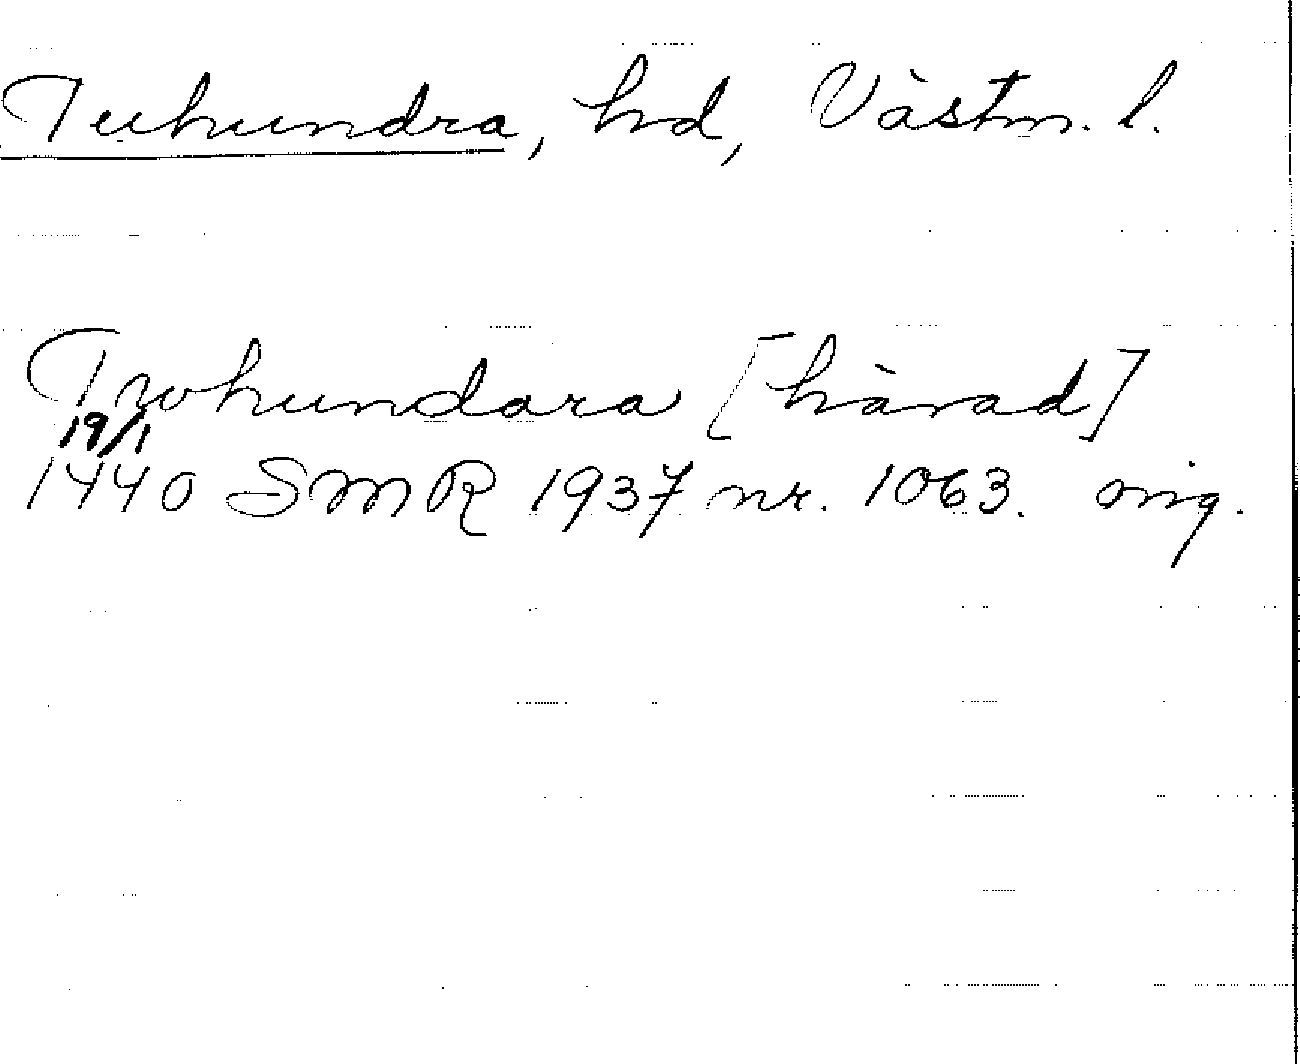 Tuhundra, hd, Västm. l.
Twhundara [härad]
19/1
1440 SMR 1937 nr. 1063. orig.